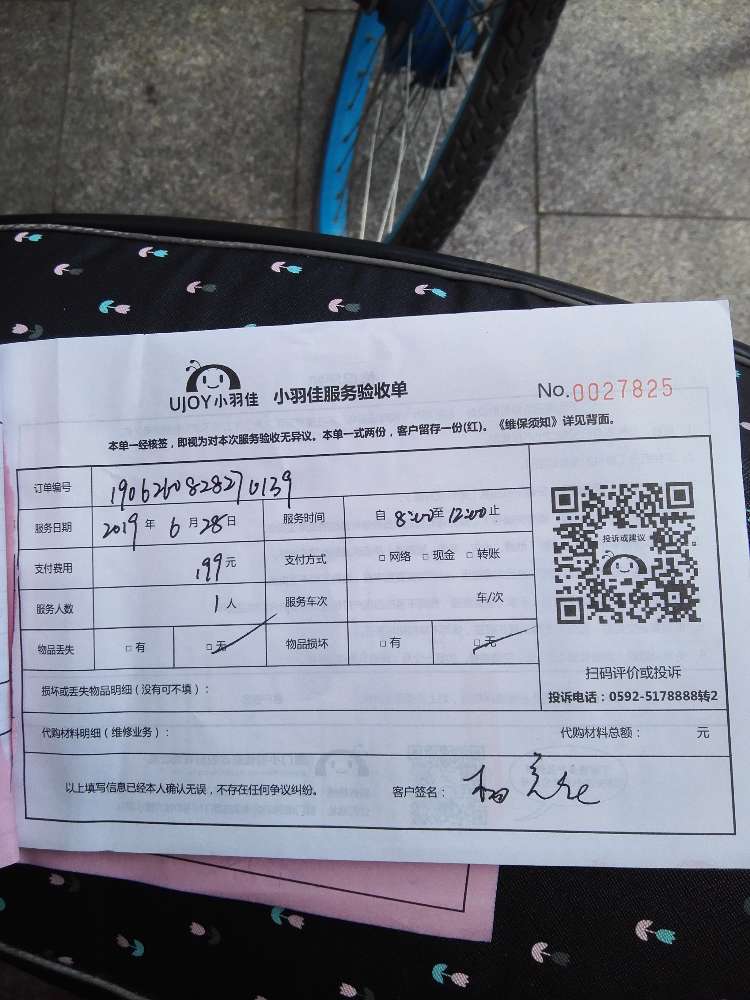 UJOY小羽佳 小羽佳服务验收单 No.0027825
本单一经核签，即视为对本次服务验收无异议。本单一式两份，客户留存一份(红)。《维保须知》详见背面。
订单编号 1906260828270139
服务日期 2019年6月28日 服务时间 自8:00至12:00止
支付费用 199元 支付方式 □网络 □现金 □转账
服务人数 1人 服务车次 车/次
物品丢失 □有 □无 物品损坏 □有 □无
投诉或建议
扫码评价或投诉
投诉电话：0592-5178888转2
损坏或丢失物品明细（没有可不填）：
代购材料明细（维修业务）： 代购材料总额： 元
以上填写信息已经本人确认无误，不存在任何争议纠纷。 客户签名：